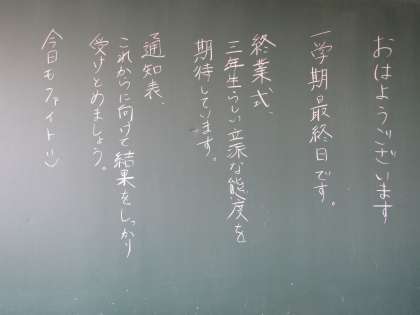 おはようございます
一学期最終日です。
終業式、
三年生らしい立派な態度を
期待しています。
通知表、
これからに向けて結果をしっかり
受けとめましょう。
今日もファイト!!